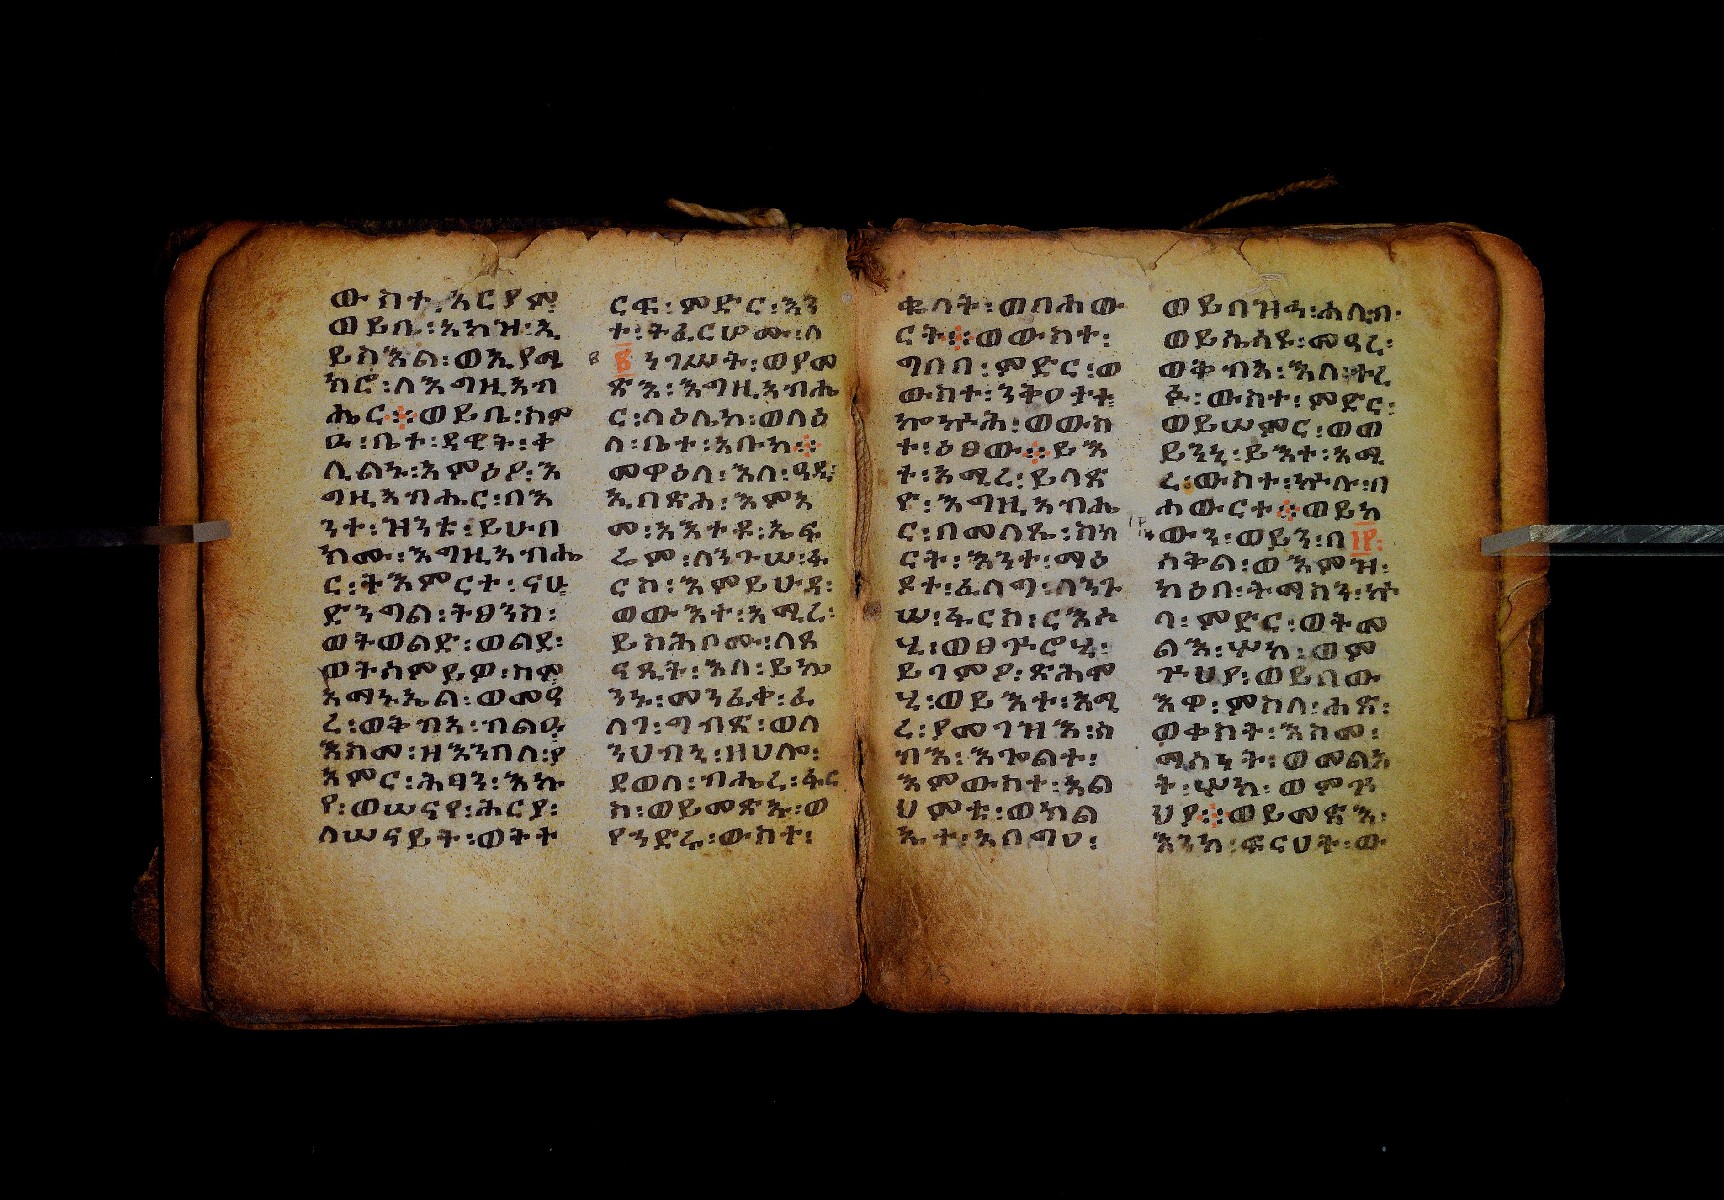 ውስተ፡አርያም፡
ወይቤ፡አካዝ፡ኢ
ይስእል፡ወኢያሜ
ክሮ፡ለእግዚአብ
ሔር፨ወይቤ፡ስም
ዑ፡ቤተ፡ዳዊት፡
ግዚአብሔር፡በእ
ንተ፡ዝንቱ፡ይሁብ
ክሙ፡እግዚአብሔ
ር፡ትእምርተ፡ናሁ
ድንግል፡ትፀንስ፡
ወትወልድ፡ወልደ፡
ወትሰምይዎ፡ስሞ
አማኑኤል፡ወመዓ
ረ፡ወቅብአ፡ብልዑ
እስመ፡ዘእንበለ፡ያ
እምር፡ሕፃን፡እኩ
የ፡ወሠናየ፡ሕርያ፡
ለሠናይት፡ወትት
ርፍ፡ምድር፡እን
ተ፡ትፈርሆሙ፡ለ
፪ንገሥት፡ወያመ
ጽእ፡እግዚአብሔ
ር፡ላዕሌከ፡ወላዕ
ለ፡ቤተ፡አቡከ፨
መዋዕለ፡እለ፡ዓዲ፡
ኢበጽሐ፡እምአ
መ፡አእተቶ፡ኤፍ
ሬም፡ለንጉሠ፡ፋ
ርስ፡እምይሁዳ፡
ወውእተ፡አሚረ፡
ናዪት፡እለ፡ይኴ
ንኑ፡መንፈቀ፡ፈ
ለገ፡ግብጽ፡ወለ
ንህብ፡ዘሀሎ፡
ደወለ፡ብሔረ፡ፋር
ስ፡ወይመጽኡ፡ወ
የኀድሩ፡ውስተ፡
ቈላት፡ወበሐው
ርት፨ወውስተ፡
ግበበ፡ምድር፡ወ
ውስተ፡ንቅዐታተ፡
ኰኵሕ፡ወውስ
ተ፡ዕፀው፨ይእ
ተ፡አሚረ፡ይላጽ
ዮ፡እግዚአብሔ
ር፡በመላጼ፡ስክ
ርት፡እንተ፡ማዕ
ዶተ፡ፈለግ፡ለንጉ
ሠ፡ፋርስ፡ርእሶ
ሂ፡ወፀጕሮሂ፡
ይላምዖ፡ጽሕሞ
ሂ፡ወይእተ፡አሚ
ረ፡ያመገዝእ፡ብ
ብእ፡እጐልተ፡
እምውስተ፡አል
ህምቱ፡ወክል
ኤተ፡አበግዐ፡
ወይበዝኃ፡ሐሊብ፡
ወቅብአ፡እለ፡ተረ
ፉ፡ውስተ፡ምድር፡
ወይሠምር፡ወወ
ይንኒ፡ይእተ፡አሚ
ረ፡ውስተ፡ኵሉ፡በ
ሐውርተ፨ወይከ
ውን፡ወይን፡በ፲፻፡
ሰቅል፡ወእምዝ፡
ክዕበ፡ትማስን፡ኵ
ላ፡ምድር፡ወትመ
ልእ፡ሦከ፡ወም
ጕህያ፡ወይበው
እዋ፡ምስለ፡ሐጽ፡
ወቀስት፡እስመ፡
ማሰነት፡ወመልአ
ት፡ሦከ፡ወምጕ
ህያ፨ወይመጽእ፡
እንከ፡ፍርሀት፡ው